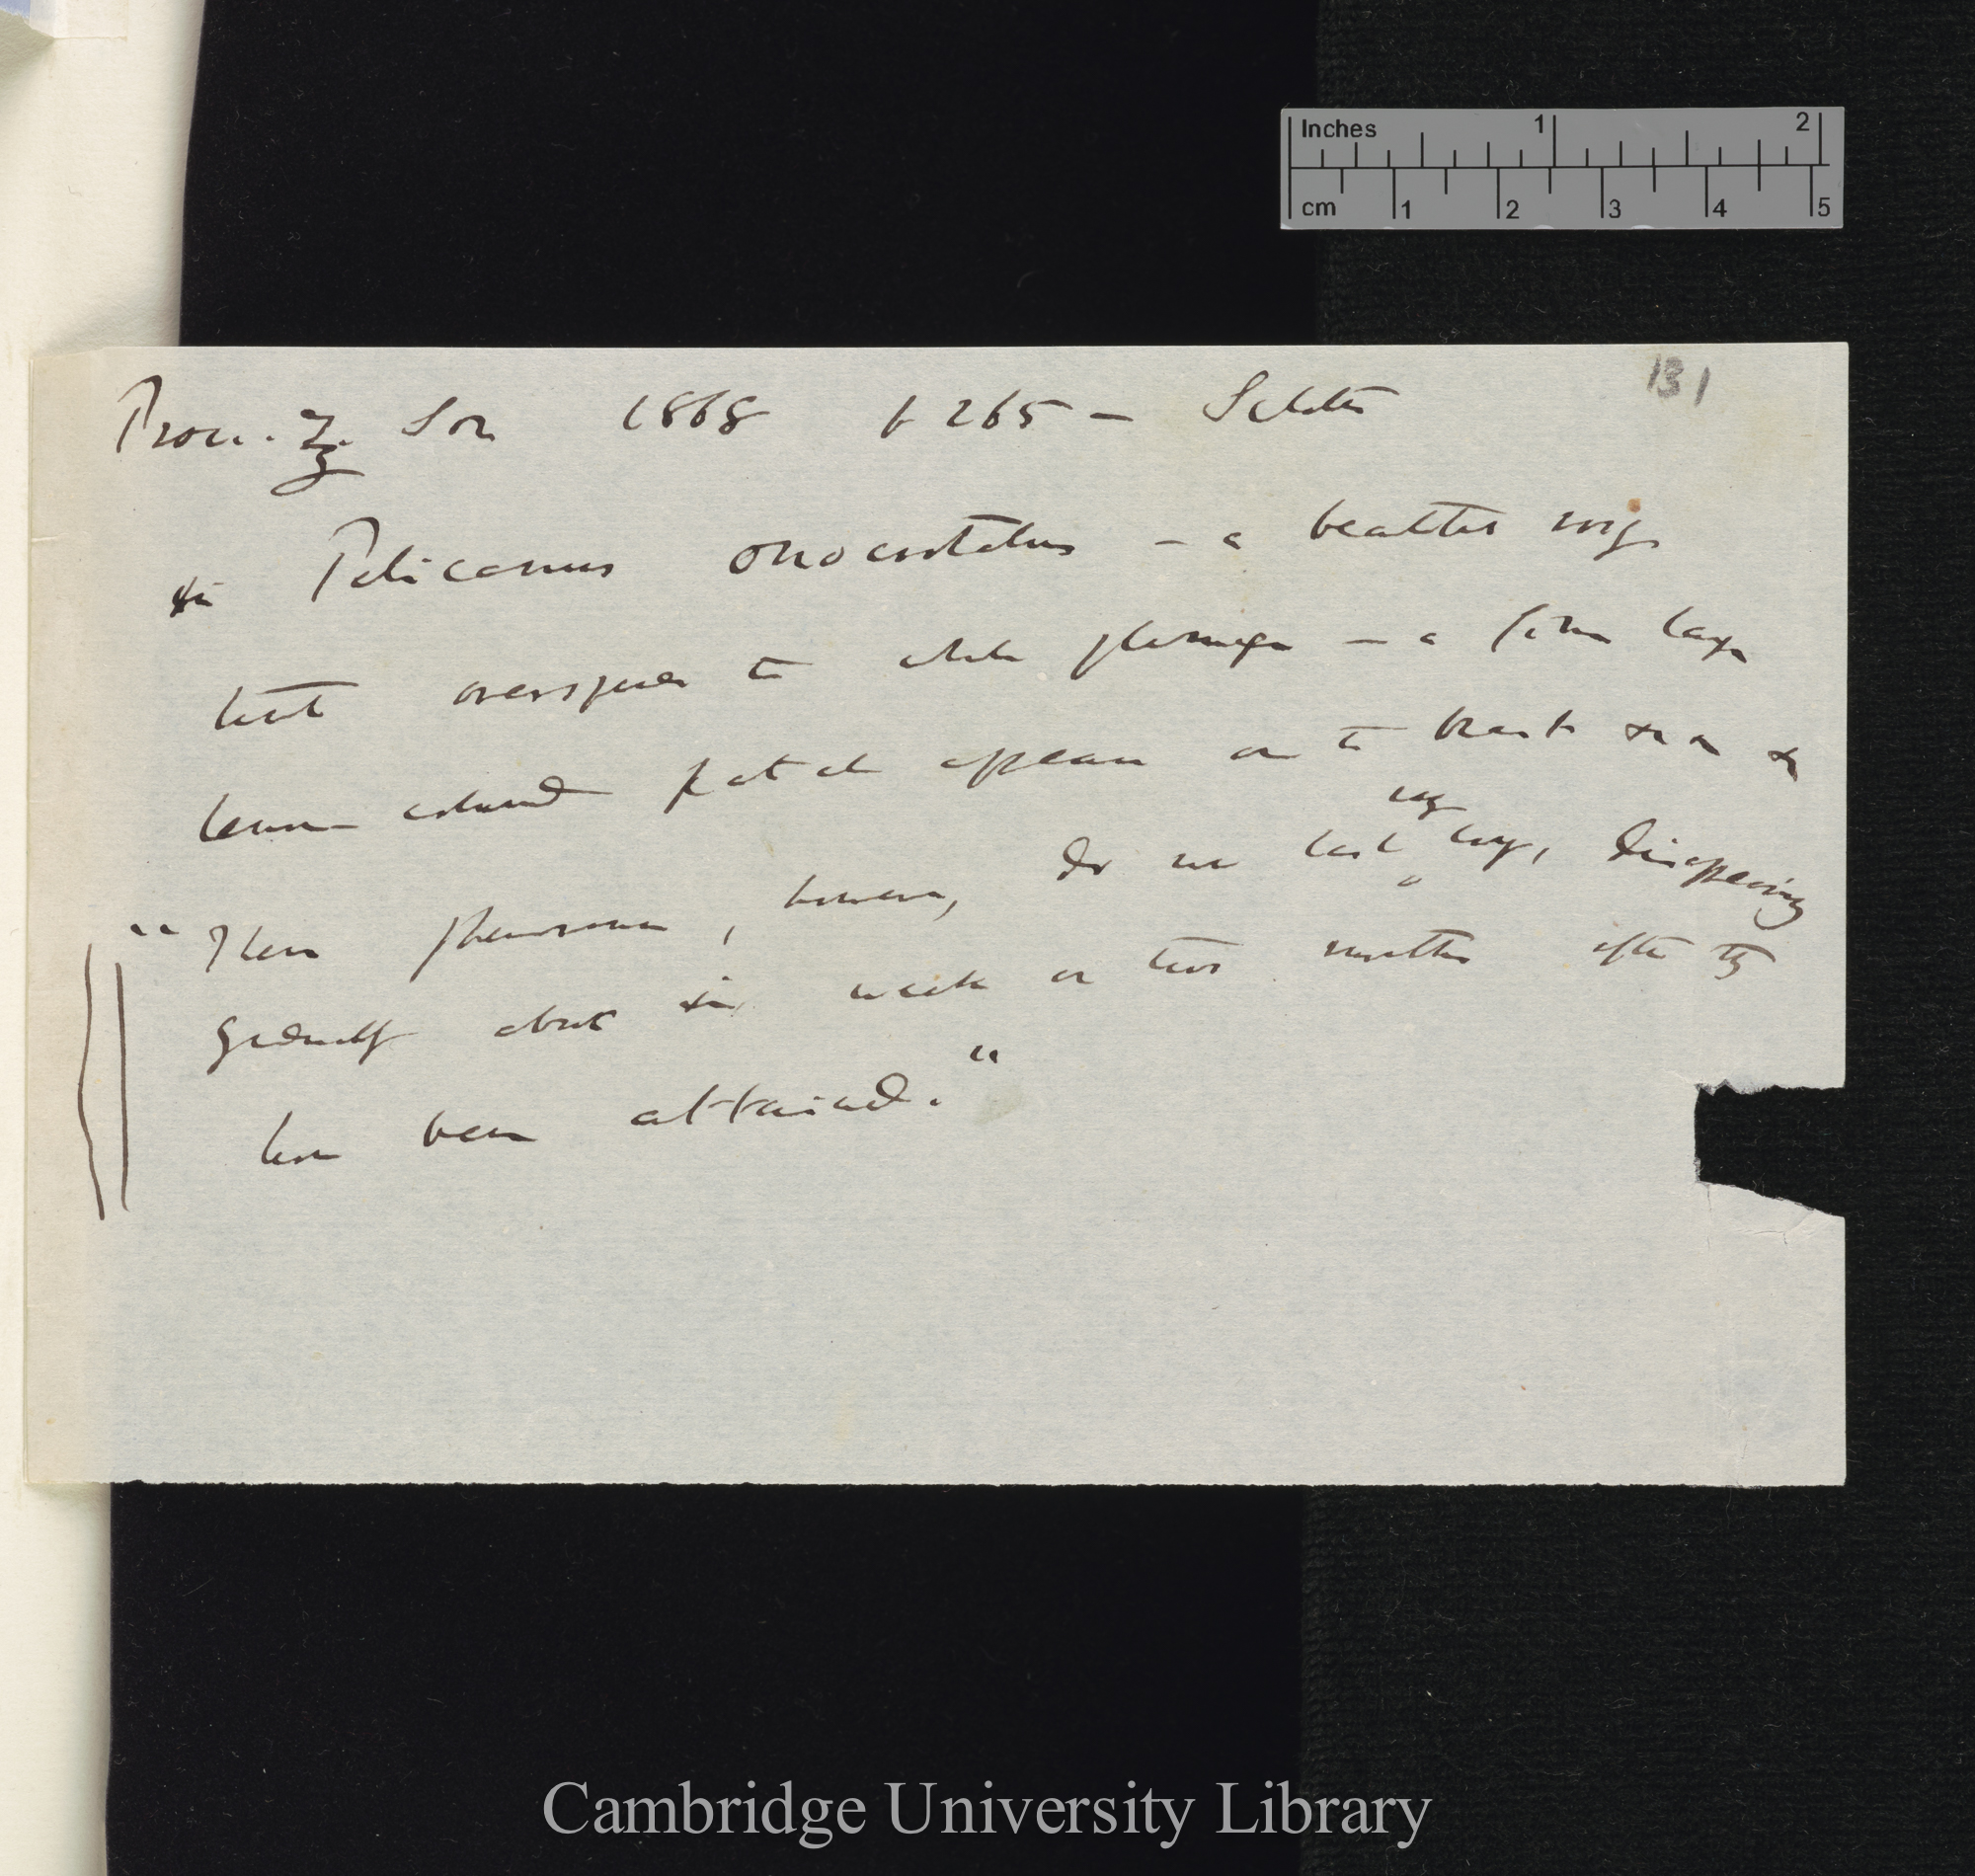 Inches 1 2
cm 1 2 3 4 5
131
Proc. Z. Soc 1868 p 265 — Sclater
in Pelicanus onocrotalus — a beautiful rosy
tint overspreads the white plumage — a lemon
lemon coloured patch appears on the breast
"These phenomena, however, do not last very long, disappearing
gradually about six weeks or two months after they
have been attained."
Cambridge University Library